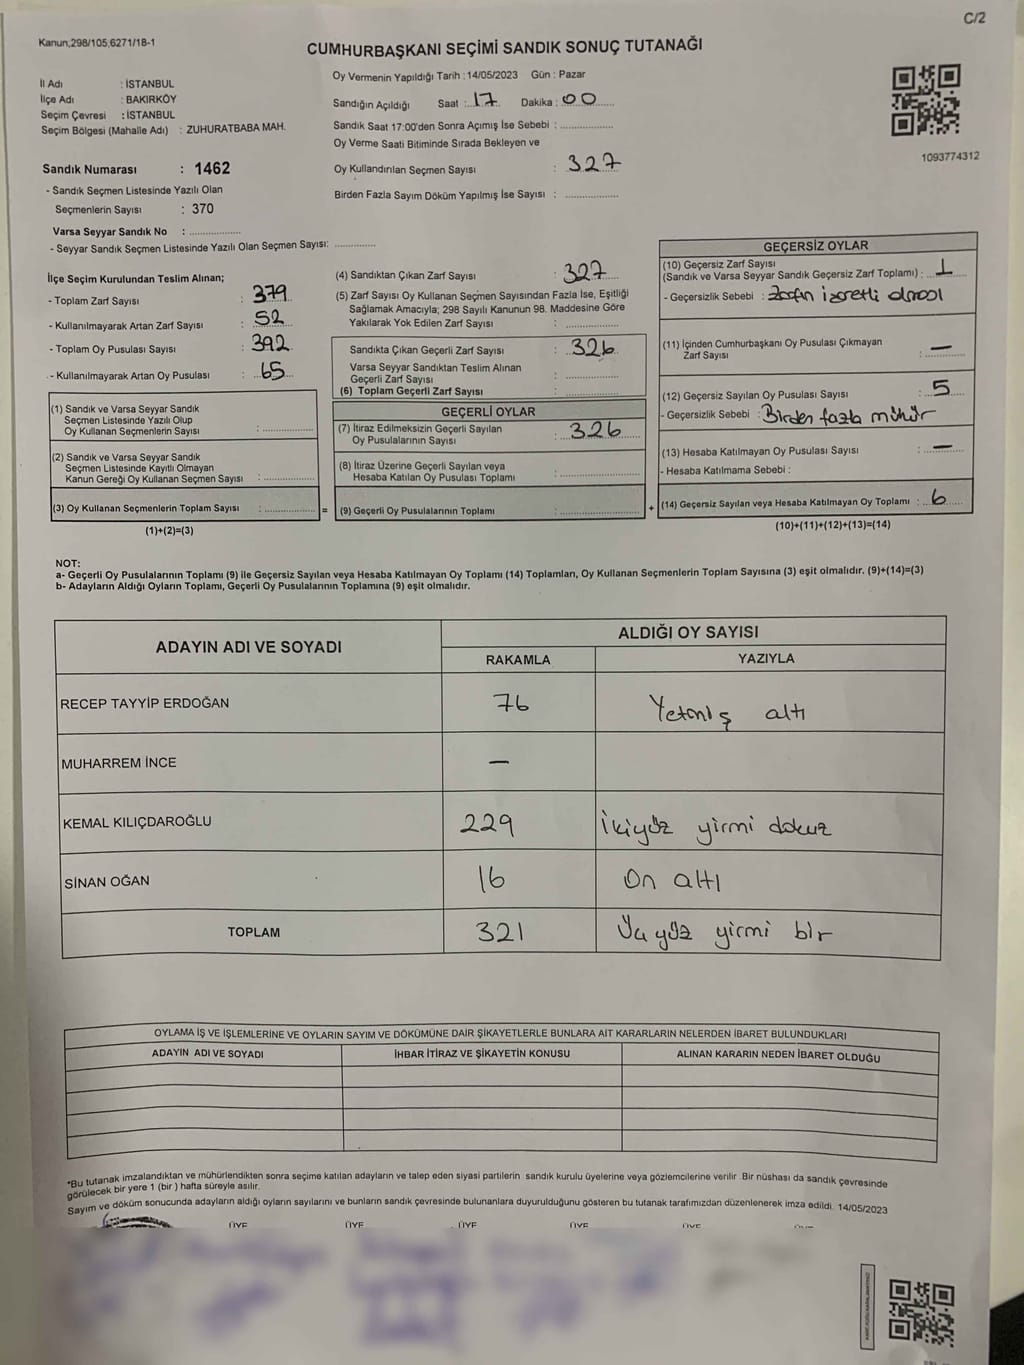 C/2
Kanun,298/105,6271/1B-1
CUMHURBAŞKANI SEÇİMİ SANDIK SONUÇ TUTANAĞI
İl Adı : İSTANBUL
İlçe Adı : BAKIRKÖY
Seçim Çevresi : İSTANBUL
Seçim Bölgesi (Mahalle Adı) : ZUHURATBABA MAH.
Sandık Numarası : 1462
- Sandık Seçmen Listesinde Yazılı Olan
Seçmenlerin Sayısı : 370
Varsa Seyyar Sandık No : ..................
- Seyyar Sandık Seçmen Listesinde Yazılı Olan Seçmen Sayısı: ..............
Oy Vermenin Yapıldığı Tarih : 14/05/2023 Gün : Pazar
Sandığın Açıldığı Saat : 17 Dakika : 00
Sandık Saat 17:00'den Sonra Açımış İse Sebebi : ..................
Oy Verme Saati Bitiminde Sırada Bekleyen ve
Oy Kullandırılan Seçmen Sayısı : 327
Birden Fazla Sayım Döküm Yapılmış İse Sayısı : ..................
1093774312
İlçe Seçim Kurulundan Teslim Alınan;
- Toplam Zarf Sayısı : 379
- Kullanılmayarak Artan Zarf Sayısı : 52
- Toplam Oy Pusulası Sayısı : 392
- Kullanılmayarak Artan Oy Pusulası : 65
(1) Sandık ve Varsa Seyyar Sandık
Seçmen Listesinde Yazılı Olup
Oy Kullanan Seçmenlerin Sayısı : ..................
(2) Sandık ve Varsa Seyyar Sandık
Seçmen Listesinde Kayıtlı Olmayan
Kanun Gereği Oy Kullanan Seçmen Sayısı : ..................
(3) Oy Kullanan Seçmenlerin Toplam Sayısı : .................. =
(1)+(2)=(3)
(4) Sandıktan Çıkan Zarf Sayısı : 327
(5) Zarf Sayısı Oy Kullanan Seçmen Sayısından Fazla İse, Eşitliği
Sağlamak Amacıyla; 298 Sayılı Kanunun 98. Maddesine Göre
Yakılarak Yok Edilen Zarf Sayısı : ..................
Sandıkta Çıkan Geçerli Zarf Sayısı : 326
Varsa Seyyar Sandıktan Teslim Alınan
Geçerli Zarf Sayısı : ..................
(6) Toplam Geçerli Zarf Sayısı : ..................
GEÇERLİ OYLAR
(7) İtiraz Edilmeksizin Geçerli Sayılan
Oy Pusulalarının Sayısı : 326
(8) İtiraz Üzerine Geçerli Sayılan veya
Hesaba Katılan Oy Pusulası Toplamı : ..................
(9) Geçerli Oy Pusulalarının Toplamı : .................. +
GEÇERSİZ OYLAR
(10) Geçersiz Zarf Sayısı
(Sandık ve Varsa Seyyar Sandık Geçersiz Zarf Toplamı) : 1
- Geçersizlik Sebebi : Zarfın işaretli olması
(11) İçinden Cumhurbaşkanı Oy Pusulası Çıkmayan
Zarf Sayısı : —
(12) Geçersiz Sayılan Oy Pusulası Sayısı : 5
- Geçersizlik Sebebi : Birden fazla mühür
(13) Hesaba Katılmayan Oy Pusulası Sayısı : —
- Hesaba Katılmama Sebebi :
(14) Geçersiz Sayılan veya Hesaba Katılmayan Oy Toplamı : 6
(10)+(11)+(12)+(13)=(14)
NOT:
a- Geçerli Oy Pusulalarının Toplamı (9) ile Geçersiz Sayılan veya Hesaba Katılmayan Oy Toplamı (14) Toplamları, Oy Kullanan Seçmenlerin Toplam Sayısına (3) eşit olmalıdır. (9)+(14)=(3)
b- Adayların Aldığı Oyların Toplamı, Geçerli Oy Pusulalarının Toplamına (9) eşit olmalıdır.
ADAYIN ADI VE SOYADI ALDIĞI OY SAYISI
RAKAMLA YAZIYLA
RECEP TAYYİP ERDOĞAN 76 Yetmiş altı
MUHARREM İNCE —
KEMAL KILIÇDAROĞLU 229 İkiyüz yirmi dokuz
SİNAN OĞAN 16 On altı
TOPLAM 321 Üç yüz yirmi bir
OYLAMA İŞ VE İŞLEMLERİNE VE OYLARIN SAYIM VE DÖKÜMÜNE DAİR ŞİKAYETLERLE BUNLARA AİT KARARLARIN NELERDEN İBARET BULUNDUKLARI
ADAYIN ADI VE SOYADI İHBAR İTİRAZ VE ŞİKAYETİN KONUSU ALINAN KARARIN NEDEN İBARET OLDUĞU
*Bu tutanak imzalandıktan ve mühürlendikten sonra seçime katılan adayların ve talep eden siyasi partilerin sandık kurulu üyelerine veya gözlemcilerine verilir. Bir nüshası da sandık çevresinde
görülecek bir yere 1 (bir ) hafta süreyle asılır.
Sayım ve döküm sonucunda adayların aldığı oyların sayılarını ve bunların sandık çevresinde bulunanlara duyurulduğunu gösteren bu tutanak tarafımızdan düzenlenerek imza edildi. 14/05/2023
ÜYE ÜYE ÜYE ÜYE ÜYE